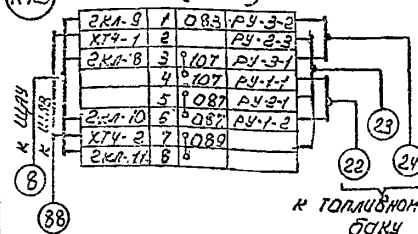 2КЛ-9 1 083 РУ-3-2
ХТ4-1 2 РУ-2-3
2КЛ-8 3 107 РУ-3-1
4 107 РУ-1-1
5 087 РУ-2-1
2КЛ-10 6 087 РУ-1-2
ХТ4-2 7 089
2КЛ-11 8
к ЩАУ
8
88
22
23
24
к топливному
баку